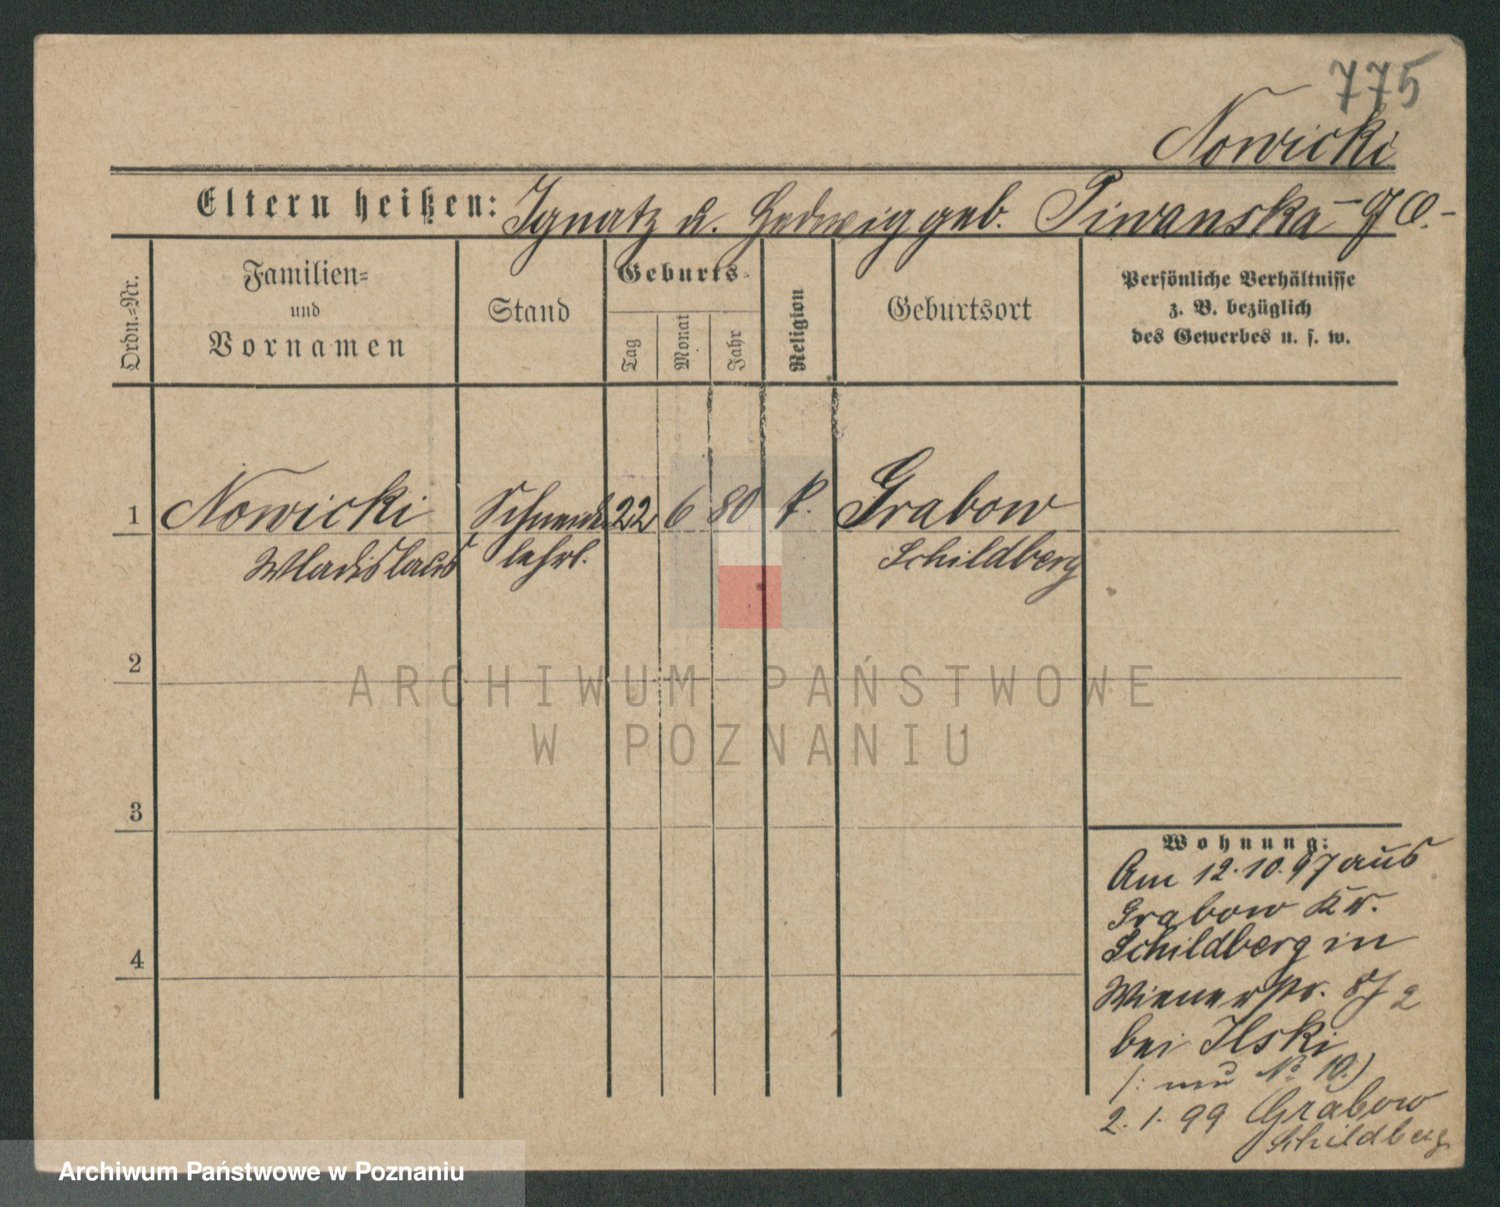 775
Nowicki
Eltern heißen: Ignatz u. Hedwig geb. Piwanska
Ordn.-Nr.
Familien-
und
Vornamen
Stand
Geburts-
Tag
Monat
Jahr
Religion
Geburtsort
Persönliche Verhältnisse
z. B. bezüglich
des Gewerbes u. s. w.
1 Nowicki Schneider 22 6 80 k. Grabow
Wladislaus lehrl. Schildberg
2
ARCHIWUM PAŃSTWOWE
W POZNANIU
3
Wohnung:
Am 12.10.97 aus
Grabow Kr.
Schildberg in
4
Wienerstr. 8/2
bei Ilski
(: neu No 10.)
2.1.99 Grabow
Schildberg
Archiwum Państwowe w Poznaniu